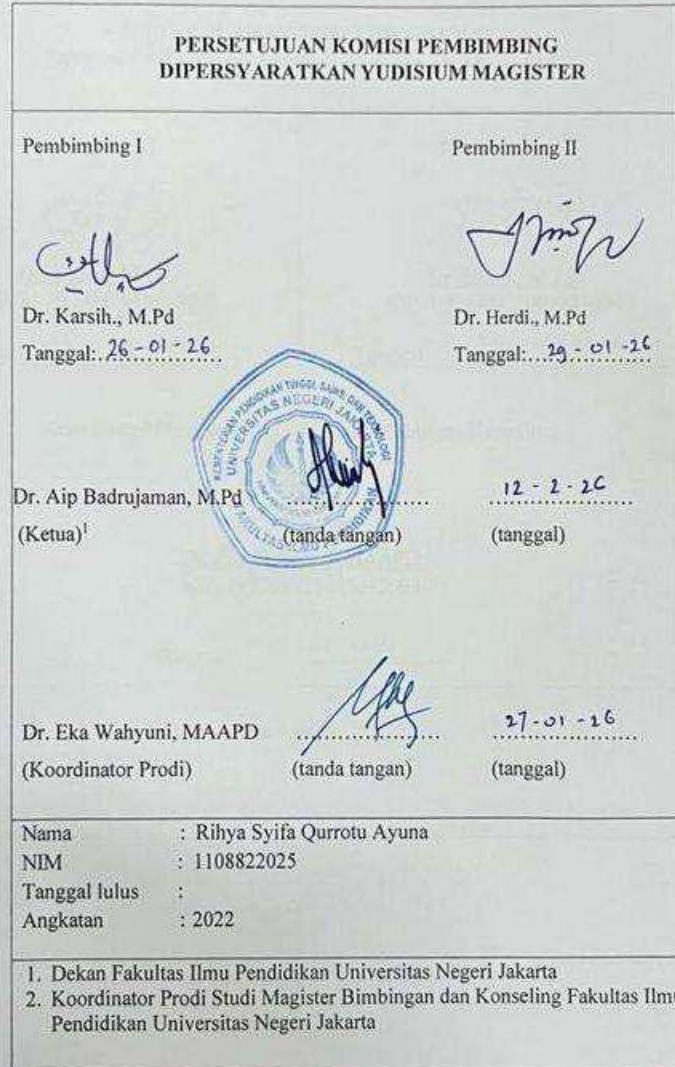 PERSETUJUAN KOMISI PEMBIMBING
DIPERSYARATKAN YUDISIUM MAGISTER
Pembimbing I
Pembimbing II
Dr. Karsih., M.Pd
Dr. Herdi., M.Pd
Tanggal: 26-01-26
Tanggal: 29-01-26
KEMENTERIAN PENDIDIKAN TINGGI, SAINS, DAN TEKNOLOGI
UNIVERSITAS NEGERI JAKARTA
FAKULTAS ILMU PENDIDIKAN
Dr. Aip Badrujaman, M.Pd ........................ 12-2-26
(Ketua)¹ (tanda tangan) (tanggal)
Dr. Eka Wahyuni, MAAPD ........................ 27-01-26
(Koordinator Prodi) (tanda tangan) (tanggal)
Nama : Rihya Syifa Qurrotu Ayuna
NIM : 1108822025
Tanggal lulus :
Angkatan : 2022
1. Dekan Fakultas Ilmu Pendidikan Universitas Negeri Jakarta
2. Koordinator Prodi Studi Magister Bimbingan dan Konseling Fakultas Ilmu
Pendidikan Universitas Negeri Jakarta